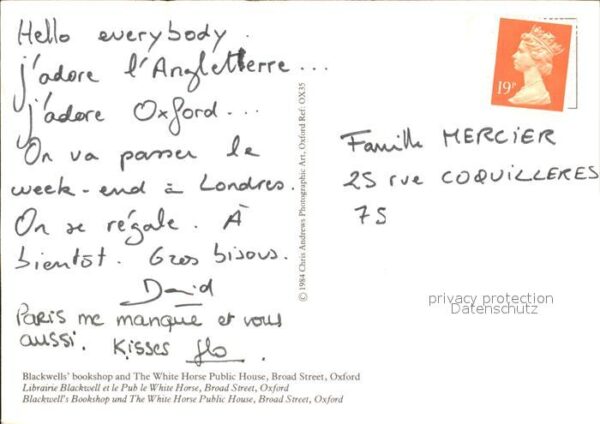 Hello everybody.
j'adore l'Angleterre...
j'adore Oxford...
On va passer le
week-end à Londres.
On se régale. À
bientôt. Gros bisous.
David
Paris me manque et vous
aussi. Kisses flo
19P
Famille MERCIER
25 rue COQUILLERES
75
© 1984 Chris Andrews Photographic Art, Oxford Ref: OX35
privacy protection
Datenschutz
Blackwells' bookshop and The White Horse Public House, Broad Street, Oxford
Librairie Blackwell et le Pub le White Horse, Broad Street, Oxford
Blackwell's Bookshop und The White Horse Public House, Broad Street, Oxford